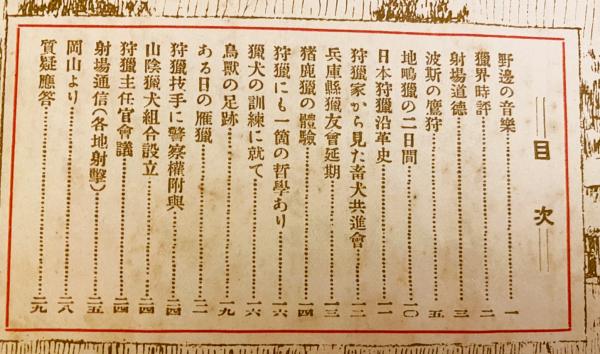 目次
野邊の音樂……一
獵界時評……二
射場道德……三
波斯の鷹狩……五
地鳴獵の二日間……一〇
日本狩獵沿革史……一一
狩獵家から見た畜犬共進會……一二
兵庫縣獵友會延期……一三
猪鹿獵の體驗……一四
狩獵にも一箇の哲學あり……一六
獵犬の訓練に就て……一六
鳥獸の足跡……一九
ある日の雁獵……
狩獵技手に警察權附與……二四
山陰獵犬組合設立……二四
狩獵主任官會議……二四
射場通信(各地射擊)……二五
岡山より……二八
質疑應答……二九